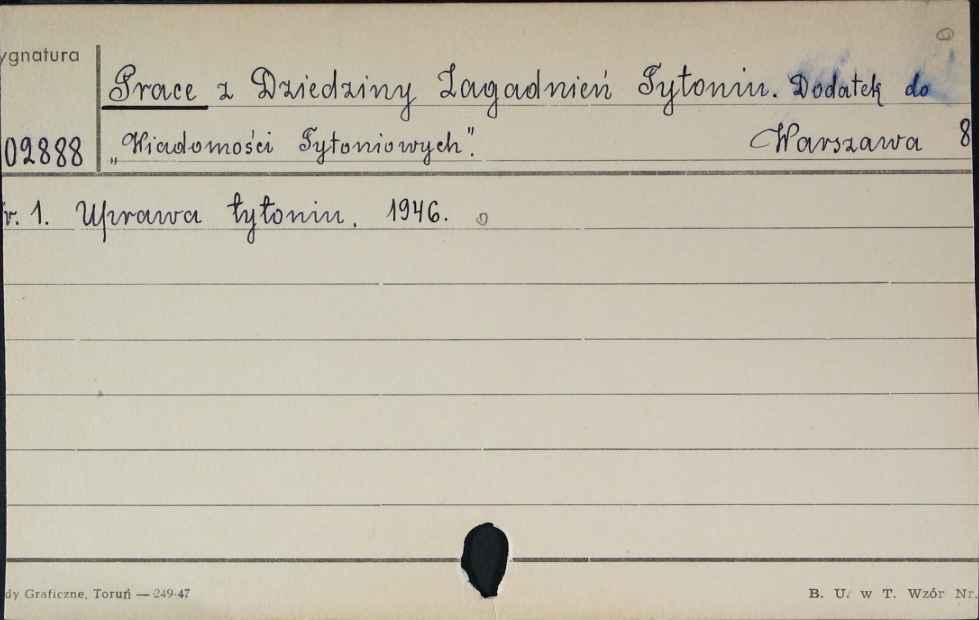 ygnatura
Prace z Dziedziny Zagadnień Tytoniu. Dodatek do
02888 „Wiadomości Tytoniowych". Warszawa 8
r. 1. Uprawa tytoniu. 1946.
dy Graficzne, Toruń — 249-47 B. U. w T. Wzór Nr.